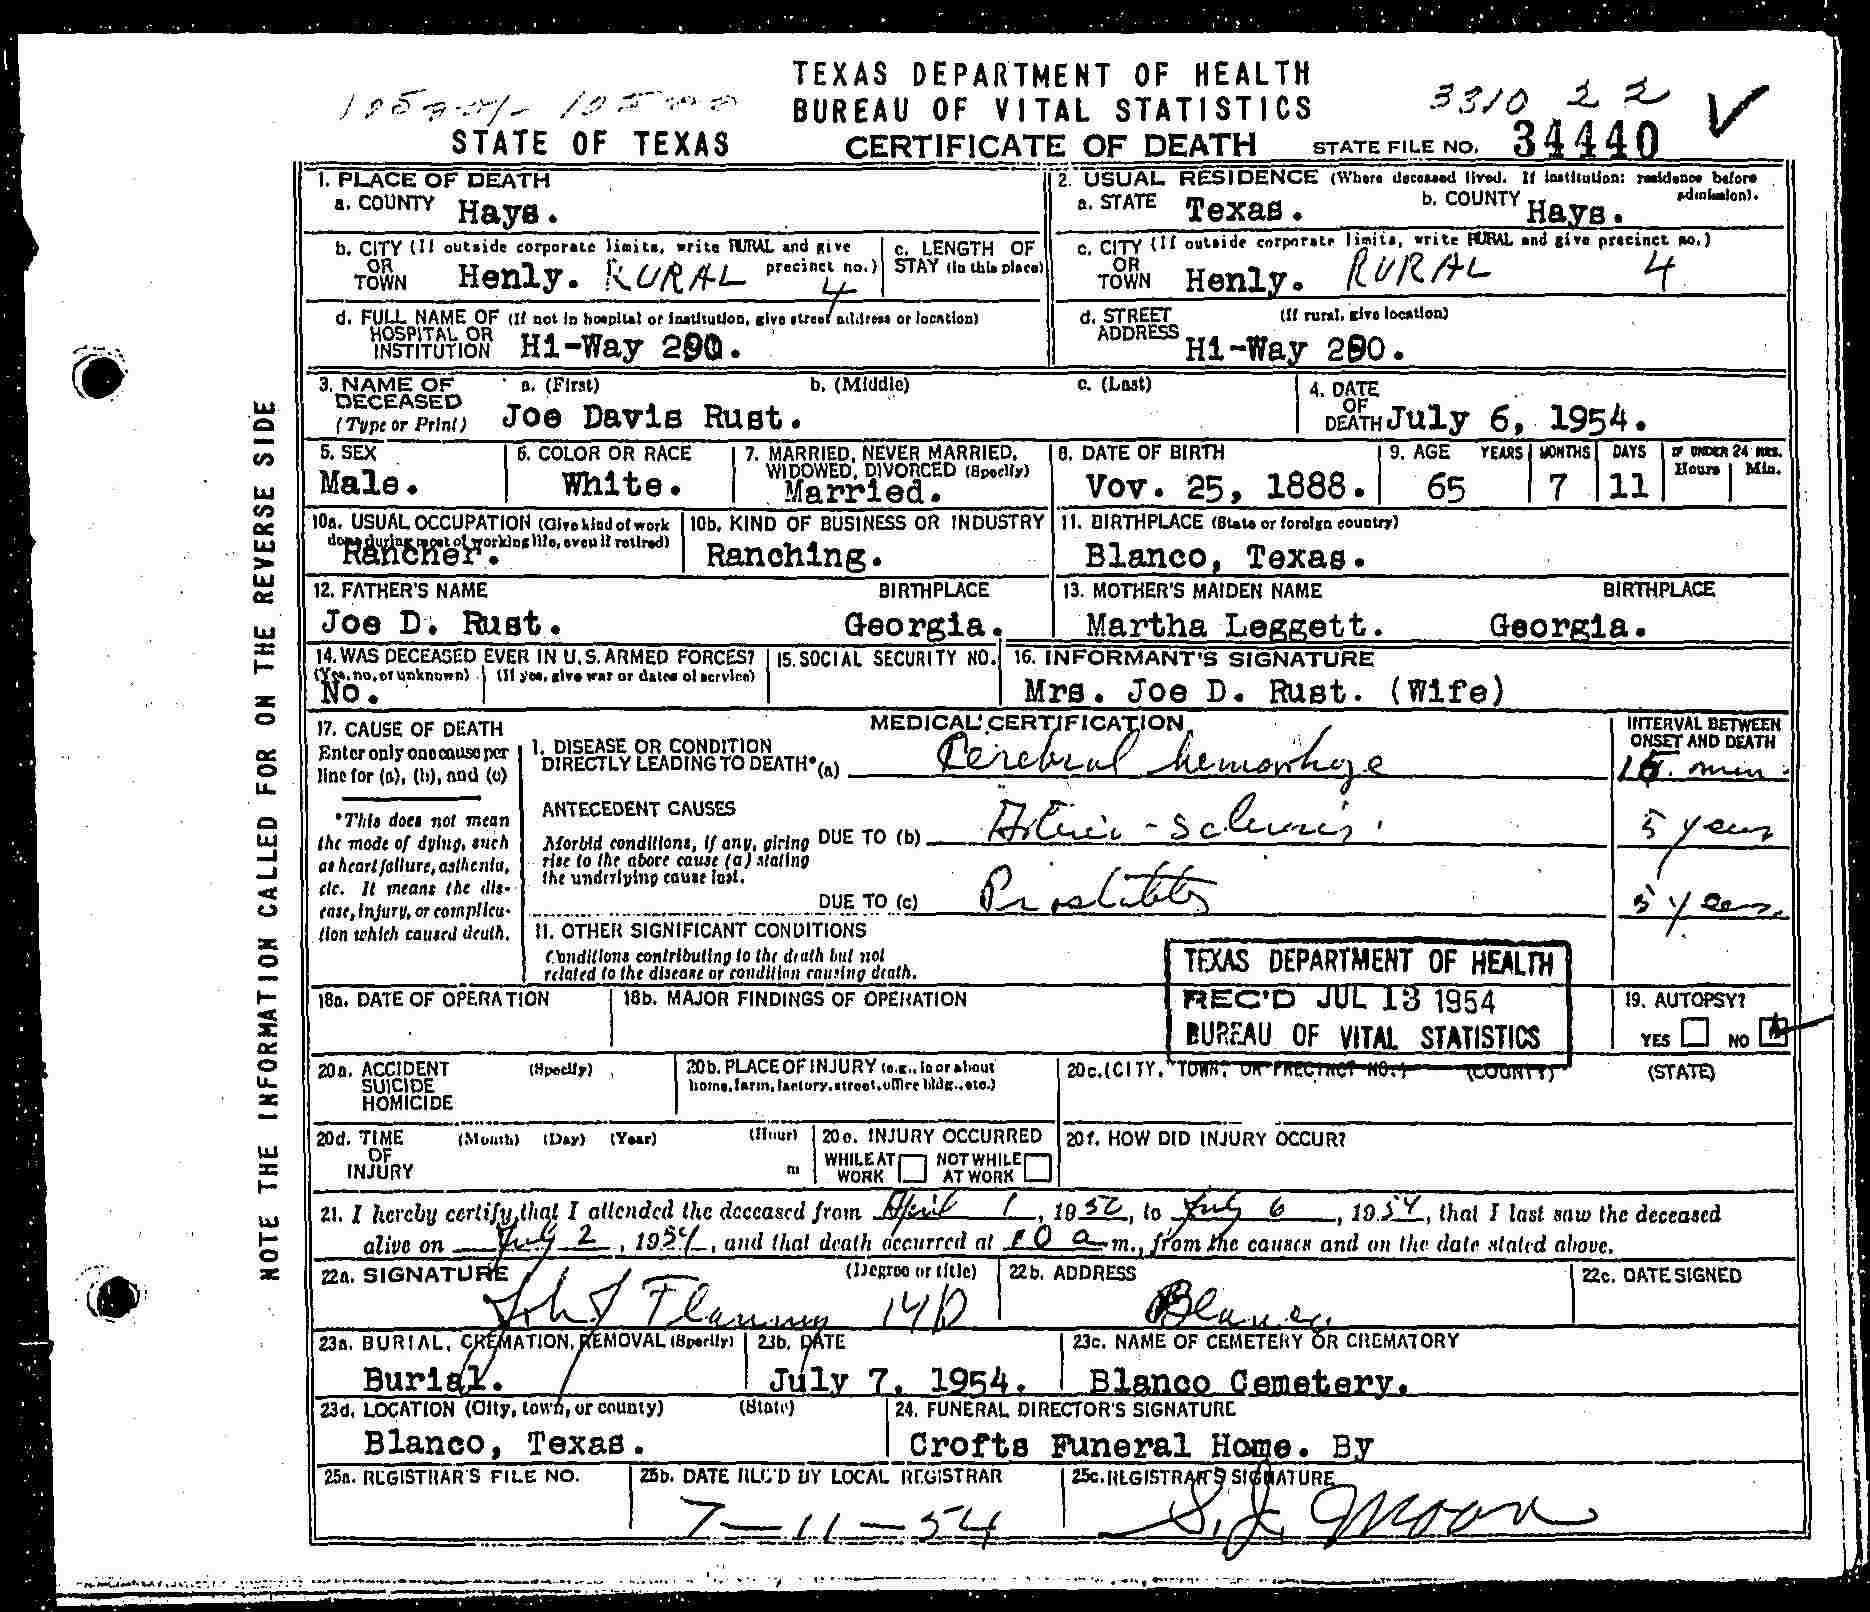 TEXAS DEPARTMENT OF HEALTH
BUREAU OF VITAL STATISTICS
3310 22
STATE OF TEXAS CERTIFICATE OF DEATH STATE FILE NO. 34440
NOTE THE INFORMATION CALLED FOR ON THE REVERSE SIDE
1. PLACE OF DEATH
a. COUNTY Hays.
2. USUAL RESIDENCE (Where deceased lived. If institution: residence before admission).
a. STATE Texas. b. COUNTY Hays.
b. CITY (If outside corporate limits, write RURAL and give precinct no.)
OR TOWN Henly. RURAL 4
c. LENGTH OF STAY (in this place)
c. CITY (If outside corporate limits, write RURAL and give precinct no.)
OR TOWN Henly. RURAL 4
d. FULL NAME OF HOSPITAL OR INSTITUTION (If not in hospital or institution, give street address or location)
Hi-Way 290.
d. STREET ADDRESS (If rural, give location)
Hi-Way 290.
3. NAME OF DECEASED (Type or Print) a. (First) b. (Middle) c. (Last)
Joe Davis Rust.
4. DATE OF DEATH July 6, 1954.
5. SEX
Male.
6. COLOR OR RACE
White.
7. MARRIED, NEVER MARRIED, WIDOWED, DIVORCED (Specify)
Married.
8. DATE OF BIRTH
Vov. 25, 1888.
9. AGE YEARS MONTHS DAYS IF UNDER 24 HRS. Hours Min.
65 7 11
10a. USUAL OCCUPATION (Give kind of work done during most of working life, even if retired)
Rancher.
10b. KIND OF BUSINESS OR INDUSTRY
Ranching.
11. BIRTHPLACE (State or foreign country)
Blanco, Texas.
12. FATHER'S NAME BIRTHPLACE
Joe D. Rust. Georgia.
13. MOTHER'S MAIDEN NAME BIRTHPLACE
Martha Leggett. Georgia.
14. WAS DECEASED EVER IN U.S. ARMED FORCES?
(Yes, no, or unknown) (If yes, give war or dates of service)
No.
15. SOCIAL SECURITY NO.
16. INFORMANT'S SIGNATURE
Mrs. Joe D. Rust. (Wife)
17. CAUSE OF DEATH
Enter only one cause per line for (a), (b), and (c)
*This does not mean the mode of dying, such as heart failure, asthenia, etc. It means the disease, injury, or complication which caused death.
MEDICAL CERTIFICATION
INTERVAL BETWEEN ONSET AND DEATH
I. DISEASE OR CONDITION DIRECTLY LEADING TO DEATH* (a) Cerebral hemorrhage 15 min.
ANTECEDENT CAUSES
Morbid conditions, if any, giving rise to the above cause (a) stating the underlying cause last.
DUE TO (b) 5 years
DUE TO (c) 5 years
II. OTHER SIGNIFICANT CONDITIONS
Conditions contributing to the death but not related to the disease or condition causing death.
TEXAS DEPARTMENT OF HEALTH
REC'D JUL 13 1954
BUREAU OF VITAL STATISTICS
18a. DATE OF OPERATION
18b. MAJOR FINDINGS OF OPERATION
19. AUTOPSY?
YES NO
20a. ACCIDENT SUICIDE HOMICIDE (Specify)
20b. PLACE OF INJURY (e.g., in or about home, farm, factory, street, office bldg., etc.)
20c. (CITY, TOWN, OR PRECINCT NO.) (COUNTY) (STATE)
20d. TIME OF INJURY (Month) (Day) (Year) (Hour) m
20e. INJURY OCCURRED
WHILE AT WORK NOT WHILE AT WORK
20f. HOW DID INJURY OCCUR?
21. I hereby certify that I attended the deceased from April 1, 1952, to July 6, 1954, that I last saw the deceased
alive on July 2, 1954, and that death occurred at 10 a m., from the causes and on the date stated above.
22a. SIGNATURE (Degree or title)
MD
22b. ADDRESS
Blanco
22c. DATE SIGNED
23a. BURIAL, CREMATION, REMOVAL (Specify)
Burial.
23b. DATE
July 7, 1954.
23c. NAME OF CEMETERY OR CREMATORY
Blanco Cemetery.
23d. LOCATION (City, town, or county) (State)
Blanco, Texas.
24. FUNERAL DIRECTOR'S SIGNATURE
Crofts Funeral Home. By
25a. REGISTRAR'S FILE NO.
25b. DATE REC'D BY LOCAL REGISTRAR
7-11-54
25c. REGISTRAR'S SIGNATURE
S. J. Moon